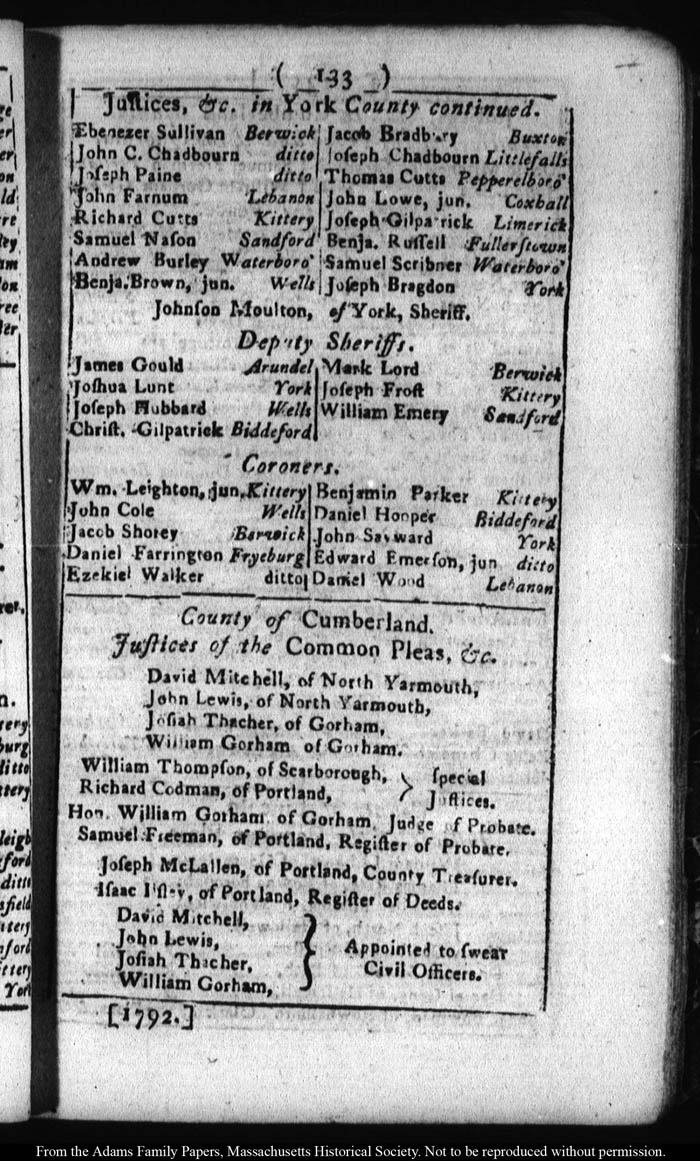 ( 133 )
Juſtices, &c. in York County continued.
Ebenezer Sullivan Berwick
John C. Chadbourn ditto
Joſeph Paine ditto
John Farnum Lebanon
Richard Cutts Kittery
Samuel Naſon Sandford
Andrew Burley Waterboro'
Benja. Brown, jun. Wells
Jacob Bradbury Buxton
Joſeph Chadbourn Littlefalls
Thomas Cutts Pepperelboro'
John Lowe, jun. Coxhall
Joſeph Gilpatrick Limerick
Benja. Ruſſell Fullerſtown
Samuel Scribner Waterboro'
Joſeph Bragdon York
Johnſon Moulton, of York, Sheriff.
Deputy Sheriffs.
James Gould Arundel
Joſhua Lunt York
Joſeph Hubbard Wells
Chriſt. Gilpatrick Biddeford
Mark Lord Berwick
Joſeph Froſt Kittery
William Emery Sandford
Coroners.
Wm. Leighton, jun. Kittery
John Cole Wells
Jacob Shorey Berwick
Daniel Farrington Fryeburg
Ezekiel Walker ditto
Benjamin Parker Kittery
Daniel Hooper Biddeford
John Sayward York
Edward Emerſon, jun ditto
Daniel Wood Lebanon
County of Cumberland.
Juſtices of the Common Pleas, &c.
David Mitchell, of North Yarmouth,
John Lewis, of North Yarmouth,
Joſiah Thacher, of Gorham,
William Gorham of Gorham.
William Thompſon, of Scarborough,
Richard Codman, of Portland,
} ſpecial
Juſtices.
Hon. William Gorham, of Gorham, Judge of Probate.
Samuel Freeman, of Portland, Regiſter of Probate.
Joſeph McLallen, of Portland, County Treaſurer.
Iſaac of Portland, Regiſter of Deeds.
David Mitchell,
John Lewis,
Joſiah Thacher,
William Gorham,
} Appointed to ſwear
Civil Officers.
[1792.]
From the Adams Family Papers, Massachusetts Historical Society. Not to be reproduced without permission.